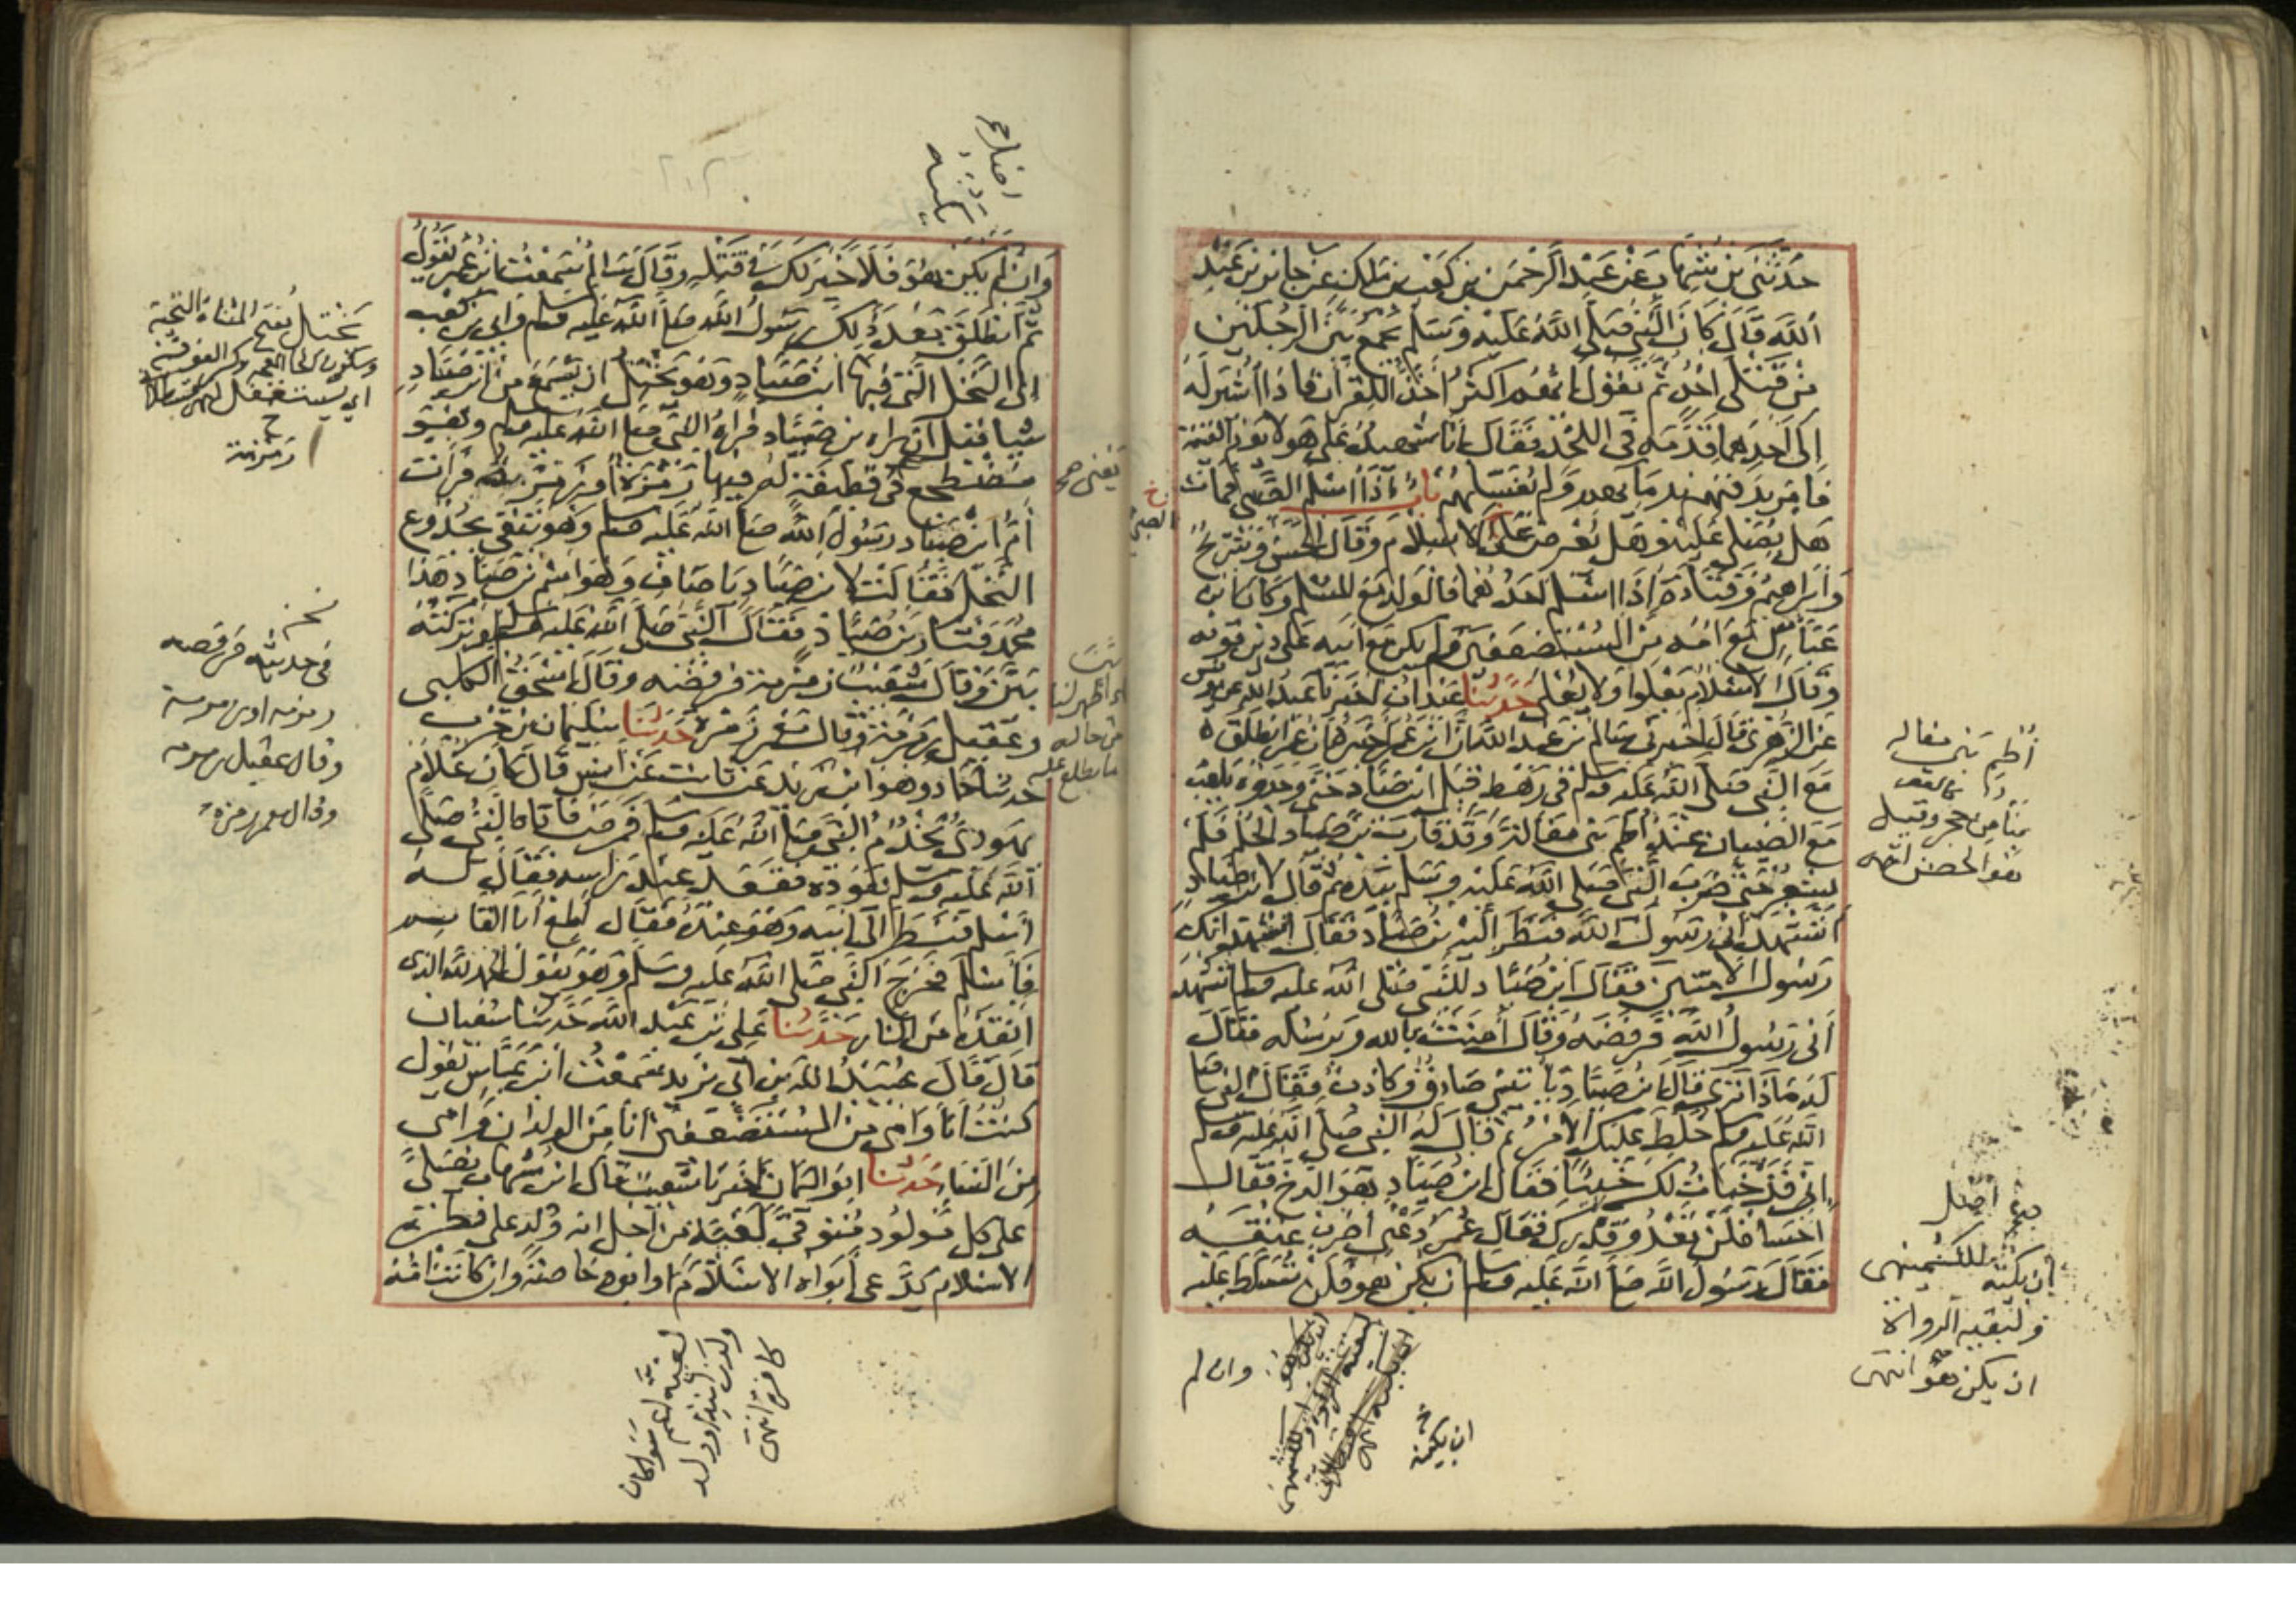 حدثني بن شهاب عن عبد الرحمن بن كعب بن ملك عن جابر بن عبد
الله قال كان النبي صلى الله عليه وسلم يجمع بين الرجلين
من قتلى احد ثم يقول ايهم اكثر اخذ للقرآن فاذا اشير له
الى احدهما قدمه في اللحد فقال انا شهيد على هولا يوم القيمة
فامر بدفنهم بدمايهم ولم يغسلهم باب اذا اسلم الصبي فمات
هل يصلى عليه وهل يعرض على الاسلام وقال الحسن وشريح
وابراهيم وقتادة اذا اسلم احدهما فالولد مع المسلم وكان ابن
عباس مع امه من المستضعفين ولم يكن مع ابيه على دين قومه
وقال الاسلام يعلوا ولا يعلى حدثنا عبدان اخبرنا عبد الله عن يونس
عن الزهري قال اخبرني سالم بن عبد الله ان ابن عمر اخبره ان عمر انطلق
مع النبي صلى الله عليه وسلم في رهط قبل ابن صياد حتى وجدوه يلعب
مع الصبيان عند اطم بني مغالة وقد قارب بن صياد الحلم فلم
يشعر حتى ضرب النبي صلى الله عليه وسلم بيده ثم قال لابن صياد
تشهد اني رسول الله فنظر اليه بن صياد فقال اشهد انك
رسول الاميين فقال ابن صياد للنبي صلى الله عليه وسلم اتشهد
اني رسول الله فرفضه وقال آمنت بالله وبرسله فقال
له ماذا ترى قال ابن صياد ياتيني صادق وكاذب فقال النبي صلى
الله عليه وسلم خلط عليك الامر ثم قال له النبي صلى الله عليه وسلم
اني قد خبات لك خبيئا فقال ابن صياد هو الدخ فقال
اخسا فلن تعدو قدرك فقال عمر دعني اضرب عنقه
فقال رسول الله صلى الله عليه وسلم ان يكن هو فلن تسلط عليه
الصبي
اطم بني مغاله
بنا من حجر وقيل
هو الحصن انتهى
ان يكنه للكشميهني
ولبقيه الرواة
ان يكن هو انتهى
وان لم
ان يكنه
وان لم يكن هو فلا خير لك في قتله وقال سالم سمعت ابن عمر يقول
ثم انطلق بعد ذلك رسول الله صلى الله عليه وسلم وابي بن كعب
الى النخل التي فيها ابن صياد وهو يختل ان يسمع من ابن صياد
شيا قبل ان يراه بن صياد فراه النبي صلى الله عليه وسلم وهو
مضطجع في قطيفة له فيها رمزة او زمرة فرات
ام ابن صياد رسول الله صلى الله عليه وسلم وهو يتقي بجذوع
النخل فقالت لابن صياد يا صاف وهو اسم بن صياد هذا
محمد فثار بن صياد فقال النبي صلى الله عليه وسلم لو تركته
بين وقال شعيب زمزمة فرفضه وقال اسحق الكلبي
وعقيل رمرمة وقال معمر رمزة حدثنا سليمان بن حرب
حدثنا حماد وهو ابن زيد عن ثابت عن انس قال كان غلام
يهودي يخدم النبي صلى الله عليه وسلم فمرض فاتاه النبي صلى
الله عليه وسلم يعوده فقعد عند راسه فقال له
اسلم فنظر الى ابيه وهو عنده فقال اطع ابا القاسم
فاسلم فخرج النبي صلى الله عليه وسلم وهو يقول الحمد لله الذي
انقذه من النار حدثنا علي بن عبد الله حدثنا سفيان
قال قال عبيد الله بن ابي يزيد سمعت ابن عباس يقول
كنت انا وامي من المستضعفين انا من الولدان وامي
من النسا حدثنا ابو اليمان اخبرنا شعيب قال ابن شهاب يصلى
على كل مولود متوفى لغية من اجل انه ولد على فطرة
الاسلام يدعي ابواه الاسلام او ابوه خاصة وان كانت امه
يختل بفتح المثناة التحتية
وسكون الخا المعجمة وكسر الفوقية
اي يستغفل
زمزمة
في حديثه فرفصه
رمزمه او زمزمة
وقال عقيل رمرمه
وقال معمر رمزة
لغية
كافرة انتهى